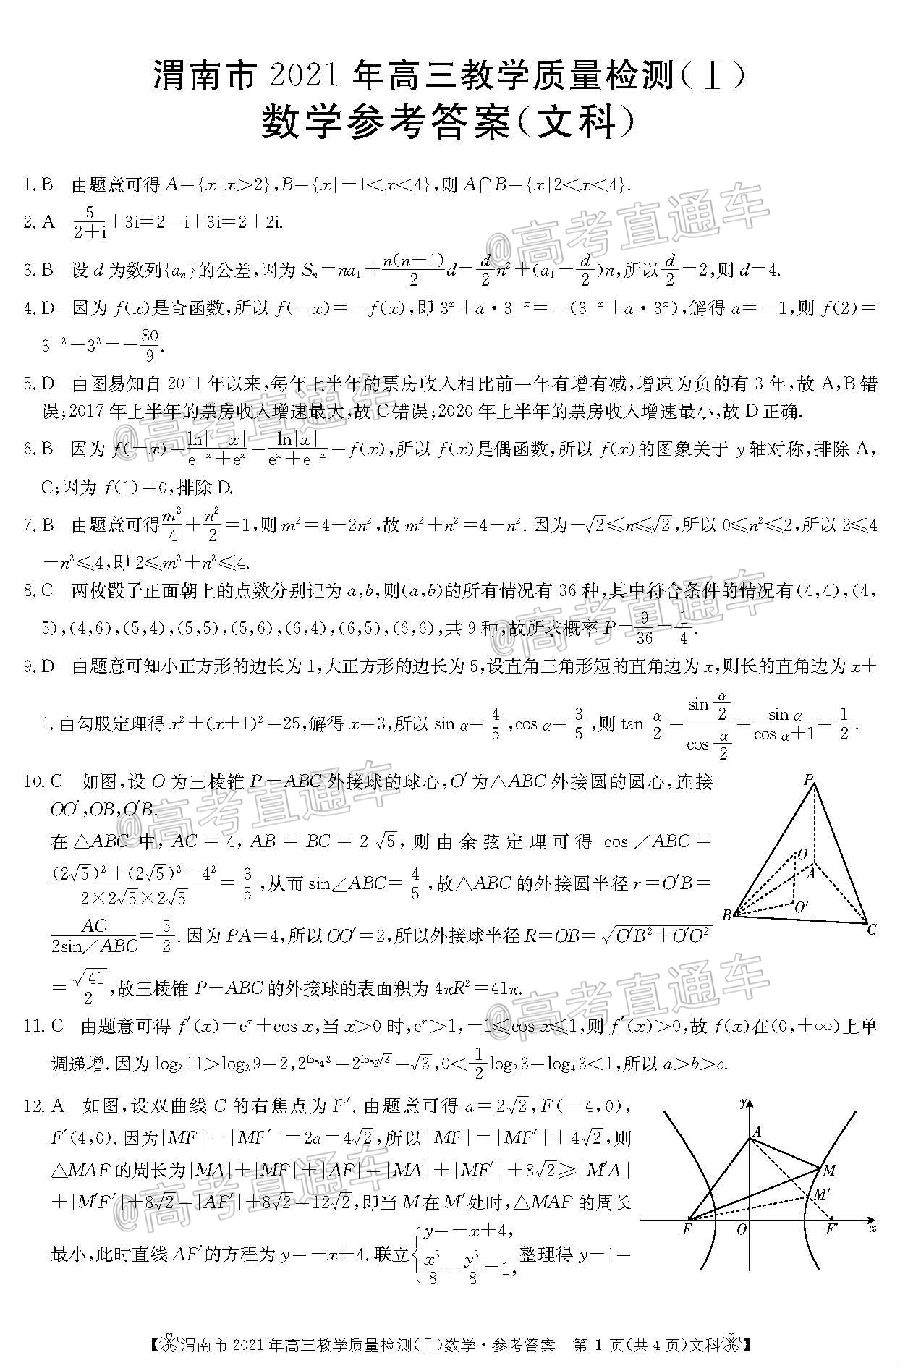 渭南市 2021 年高三教学质量检测(Ⅰ)
数学参考答案(文科)
1. B 由题意可得 A={x|x>2},B={x|-1<x<4},则 A∩B={x|2<x<4}.
2. A 5/(2+i)+3i=2-i+3i=2+2i.
3. B 设 d 为数列{aₙ}的公差,因为 Sₙ=na₁+n(n-1)/2 d=d/2 n²+(a₁-d/2)n,所以 d/2=2,则 d=4.
4. D 因为 f(x)是奇函数,所以 f(-x)=-f(x),即 3ˣ+a·3⁻ˣ=-(3⁻ˣ+a·3ˣ),解得 a=-1,则 f(2)=
3⁻²-3²=-80/9.
5. D 由图易知自 2011 年以来,每年上半年的票房收入相比前一年有增有减,增速为负的有 3 年,故 A,B 错
误;2017 年上半年的票房收入增速最大,故 C 错误;2020 年上半年的票房收入增速最小,故 D 正确.
6. B 因为 f(-x)=ln|-x|/(e⁻ˣ+eˣ)=ln|x|/(eˣ+e⁻ˣ)=f(x),所以 f(x)是偶函数,所以 f(x)的图象关于 y 轴对称,排除 A,
C;因为 f(1)=0,排除 D.
7. B 由题意可得 m²/4+n²/2=1,则 m²=4-2n²,故 m²+n²=4-n². 因为-√2≤n≤√2,所以 0≤n²≤2,所以 2≤4
-n²≤4,即 2≤m²+n²≤4.
8. C 两枚骰子正面朝上的点数分别记为 a,b,则(a,b)的所有情况有 36 种,其中符合条件的情况有(4,4),(4,
5),(4,6),(5,4),(5,5),(5,6),(6,4),(6,5),(6,6),共 9 种,故所求概率 P=9/36=1/4.
9. D 由题意可知小正方形的边长为 1,大正方形的边长为 5,设直角三角形短的直角边为 x,则长的直角边为 x+
1,由勾股定理得 x²+(x+1)²=25,解得 x=3,所以 sin α=4/5,cos α=3/5,则 tan α/2=sin(α/2)/cos(α/2)=sin α/(cos α+1)=1/2.
10. C 如图,设 O 为三棱锥 P-ABC 外接球的球心,O′为△ABC 外接圆的圆心,连接
OO′,OB,O′B.
在△ABC 中,AC=4,AB=BC=2√5,则由余弦定理可得 cos∠ABC=
((2√5)²+(2√5)²-4²)/(2×2√5×2√5)=3/5,从而 sin∠ABC=4/5,故△ABC 的外接圆半径 r=O′B=
AC/(2sin∠ABC)=5/2. 因为 PA=4,所以 OO′=2,所以外接球半径 R=OB=√(O′B²+O′O²)
=√41/2,故三棱锥 P-ABC 的外接球的表面积为 4πR²=41π.
P
O
A
B
O′
C
11. C 由题意可得 f′(x)=eˣ+cos x,当 x>0 时,eˣ>1,-1≤cos x≤1,则 f′(x)>0,故 f(x)在(0,+∞)上单
调递增. 因为 log₂11>log₂9=2,
12. A 如图,设双曲线 C 的右焦点为 F′. 由题意可得 a=2√2,F(-4,0),
F′(4,0). 因为|MF|-|MF′|=2a=4√2,所以|MF|=|MF′|+4√2,则
△MAF 的周长为|MA|+|MF|+|AF|=|MA|+|MF′|+8√2≥|M′A|
+|M′F′|+8√2=|AF′|+8√2=12√2,即当 M 在 M′处时,△MAF 的周长
最小,此时直线 AF′的方程为 y=-x+4. 联立{y=-x+4, x²/8-y²/8=1, 整理得 y-1=
y
A
M
M′
F
O
F′
x
【渭南市 2021 年高三教学质量检测(Ⅰ)数学·参考答案 第 1 页(共 4 页)文科】
@高考直通车
@高考直通车
@高考直通车
@高考直通车
@高考直通车
@高考直通车